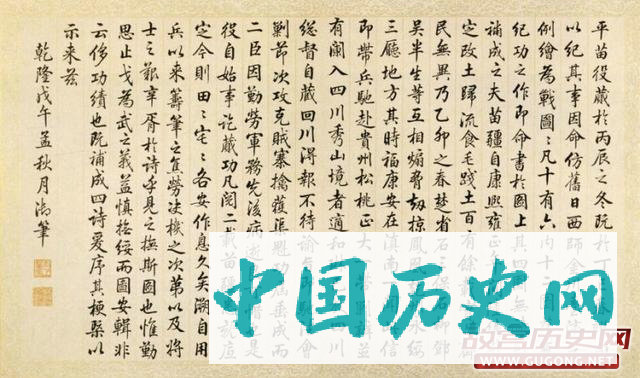 平苗役蕆於丙辰之冬既於丁
以紀其事因命仿舊日西師金
例繪為戰圖凡十有六內十二
紀功之作即命書於圖上其四
補成之夫苗疆自康熙雍正
定改土歸流食毛踐土百有餘
民無異乃乙卯之春楚省石三保
吳半生等互相煽脅劫掠鳳
三廳地方其時福康安在滇南
即帶兵馳赴貴州松桃正大
有闌入四川秀山境者適和
總督自藏回川得報不待諭
剿節次攻克賊寨擒獲渠魁功屆垂成而
二臣因勤勞軍務先後病
役自始事訖蕆功凡閱二載苗
定今則田田宅宅各安作息久矣溯自用
兵以來籌筆之焦勞決機之次第以及將
士之艱辛胥於詩乎見之撫斯圖也惟勤
思止戈為武之義益慎撫綏而圖安輯非
云侈功績也既補成四詩爰序其梗槩以
示來茲
乾隆戊午孟秋月御筆
中国历史网
故宫历史网
www.GUGONG.net